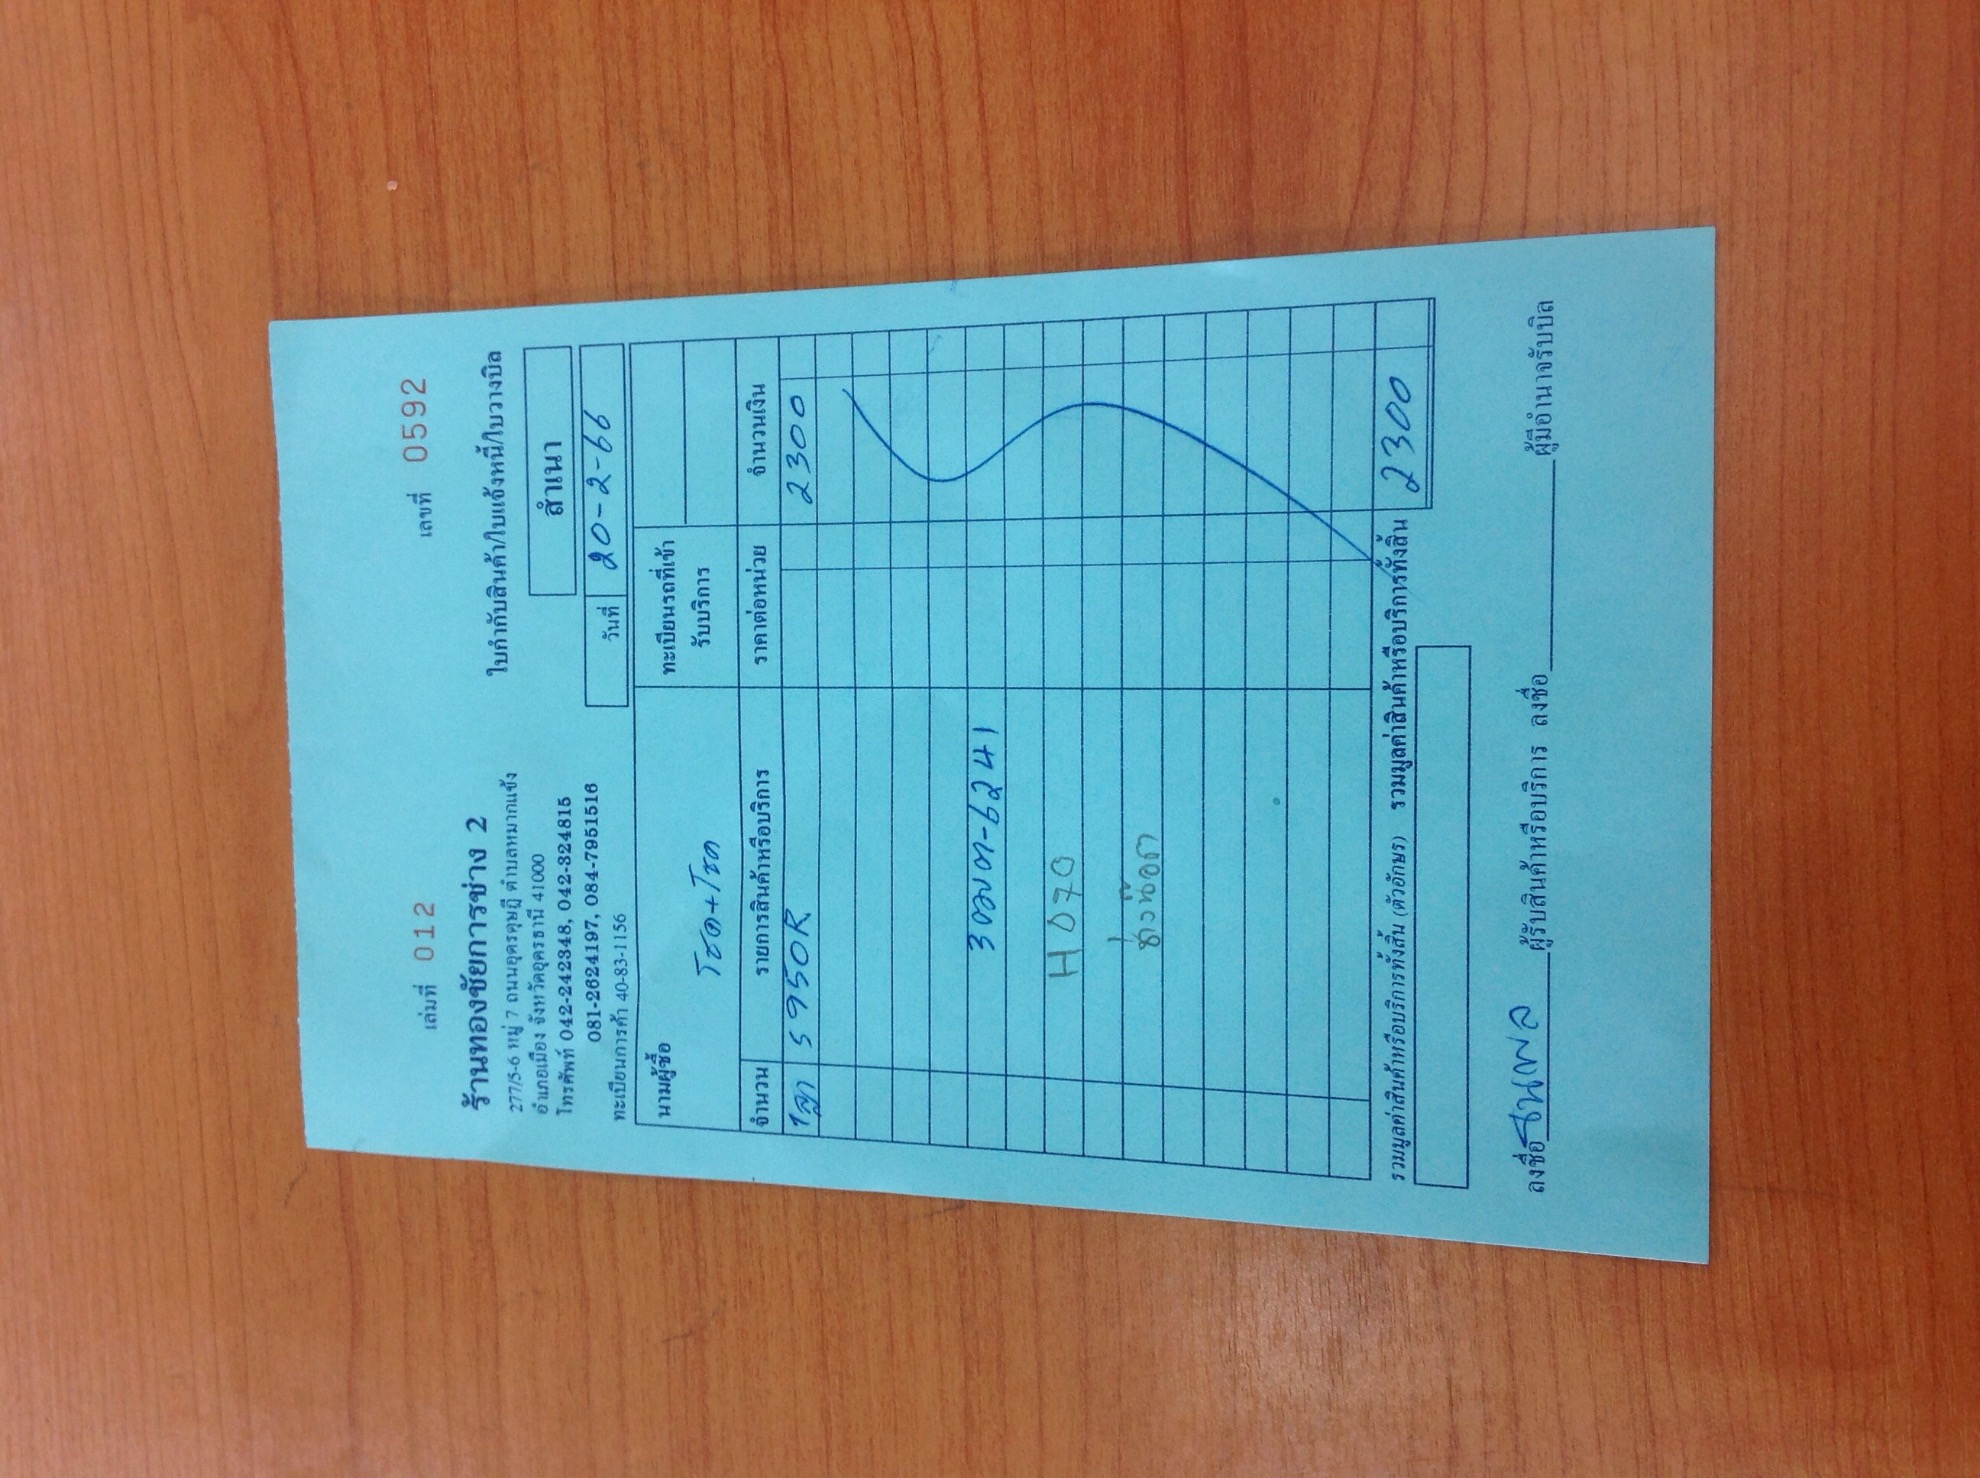 เล่มที่ 012 เลขที่ 0592
ร้านทองชัยการช่าง 2 ใบกำกับสินค้า/ใบแจ้งหนี้/ใบวางบิล
277/5-6 หมู่ 7 ถนนอุดรดุษฎี ตำบลหมากแข้ง
อำเภอเมือง จังหวัดอุดรธานี 41000
สำเนา
โทรศัพท์ 042-242348, 042-324815
081-2624197, 084-7951516
วันที่ 20-2-66
ทะเบียนการค้า 40-83-1156
นามผู้ซื้อ
โชค+โชค
ทะเบียนรถที่เข้า
รับบริการ
จำนวน รายการสินค้าหรือบริการ ราคาต่อหน่วย จำนวนเงิน
1ลูก S950R 2300
3ฒต-6241
H070
รวมมูลค่าสินค้าหรือบริการทั้งสิ้น (ตัวอักษร) รวมมูลค่าสินค้าหรือบริการทั้งสิ้น 2300
ลงชื่อ ชนพล ผู้รับสินค้าหรือบริการ ลงชื่อ ผู้มีอำนาจรับบิล